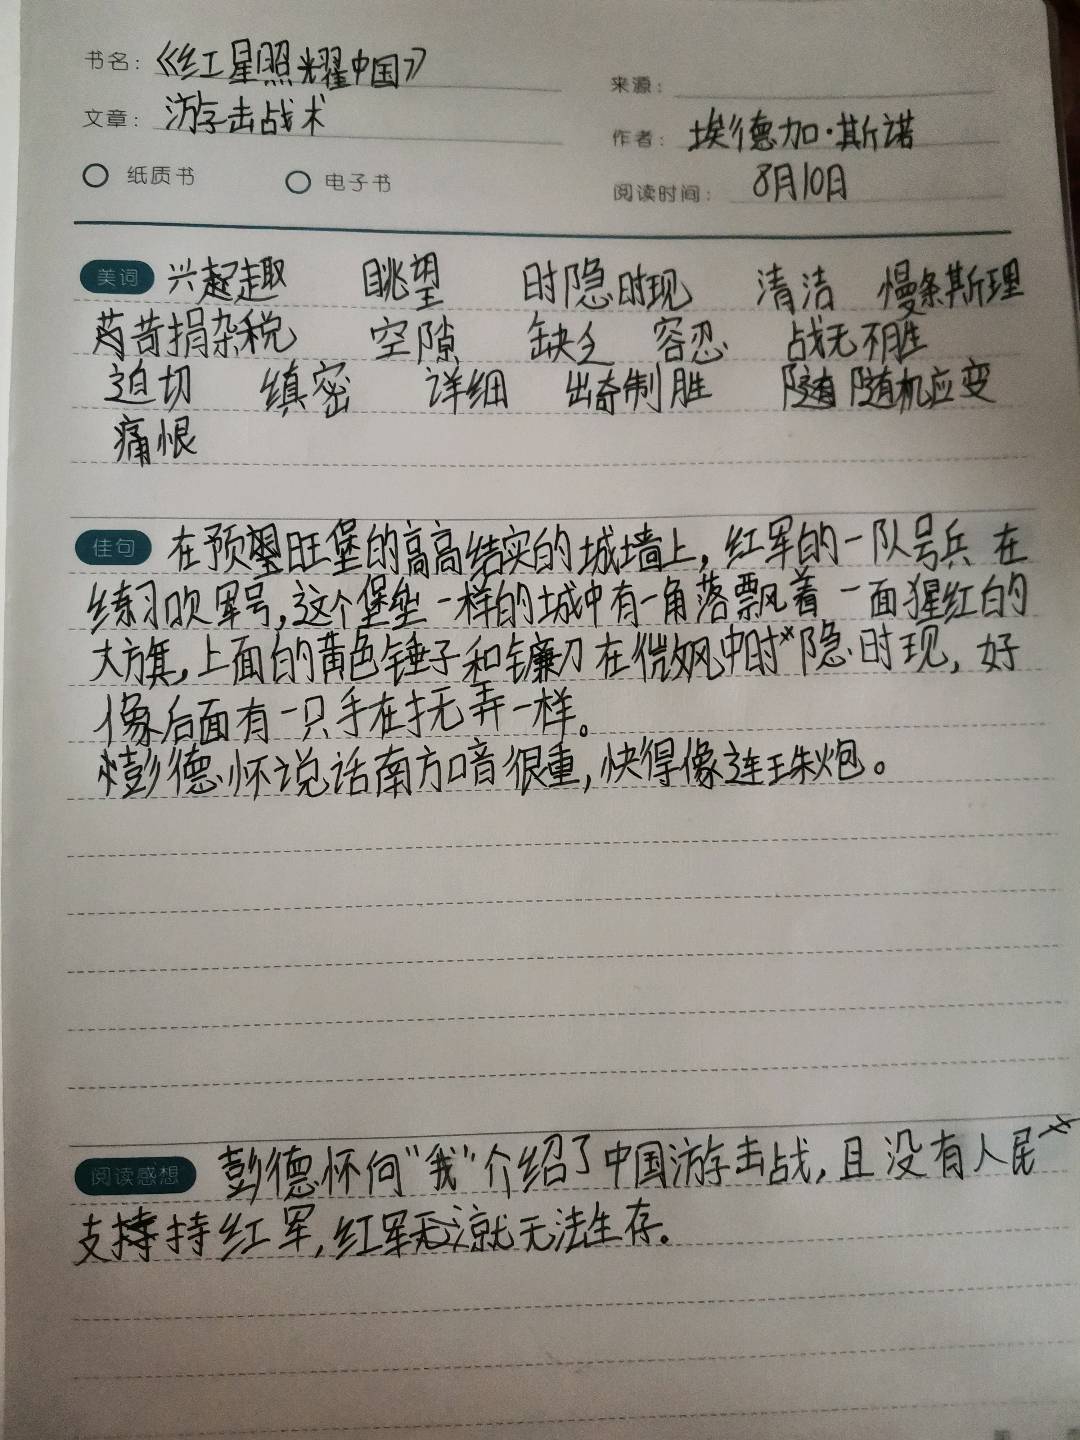 书名：《红星照耀中国》
来源：
文章：游击战术
作者：埃德加·斯诺
纸质书 电子书
阅读时间：8月10日
美词 兴趣 眺望 时隐时现 清洁 慢条斯理
苛捐杂税 空隙 缺乏 容忍 战无不胜
迫切 缜密 详细 出奇制胜 随机应变
痛恨
佳句 在预旺堡的高高结实的城墙上，红军的一队号兵在
练习吹军号，这个堡垒一样的城中有一角落飘着一面猩红的
大旗，上面的黄色锤子和镰刀在微风中时隐时现，好
像后面有一只手在抚弄一样。
彭德怀说话南方口音很重，快得像连珠炮。
阅读感想 彭德怀向“我”介绍了中国游击战，且没有人民
支持红军，红军就无法生存。